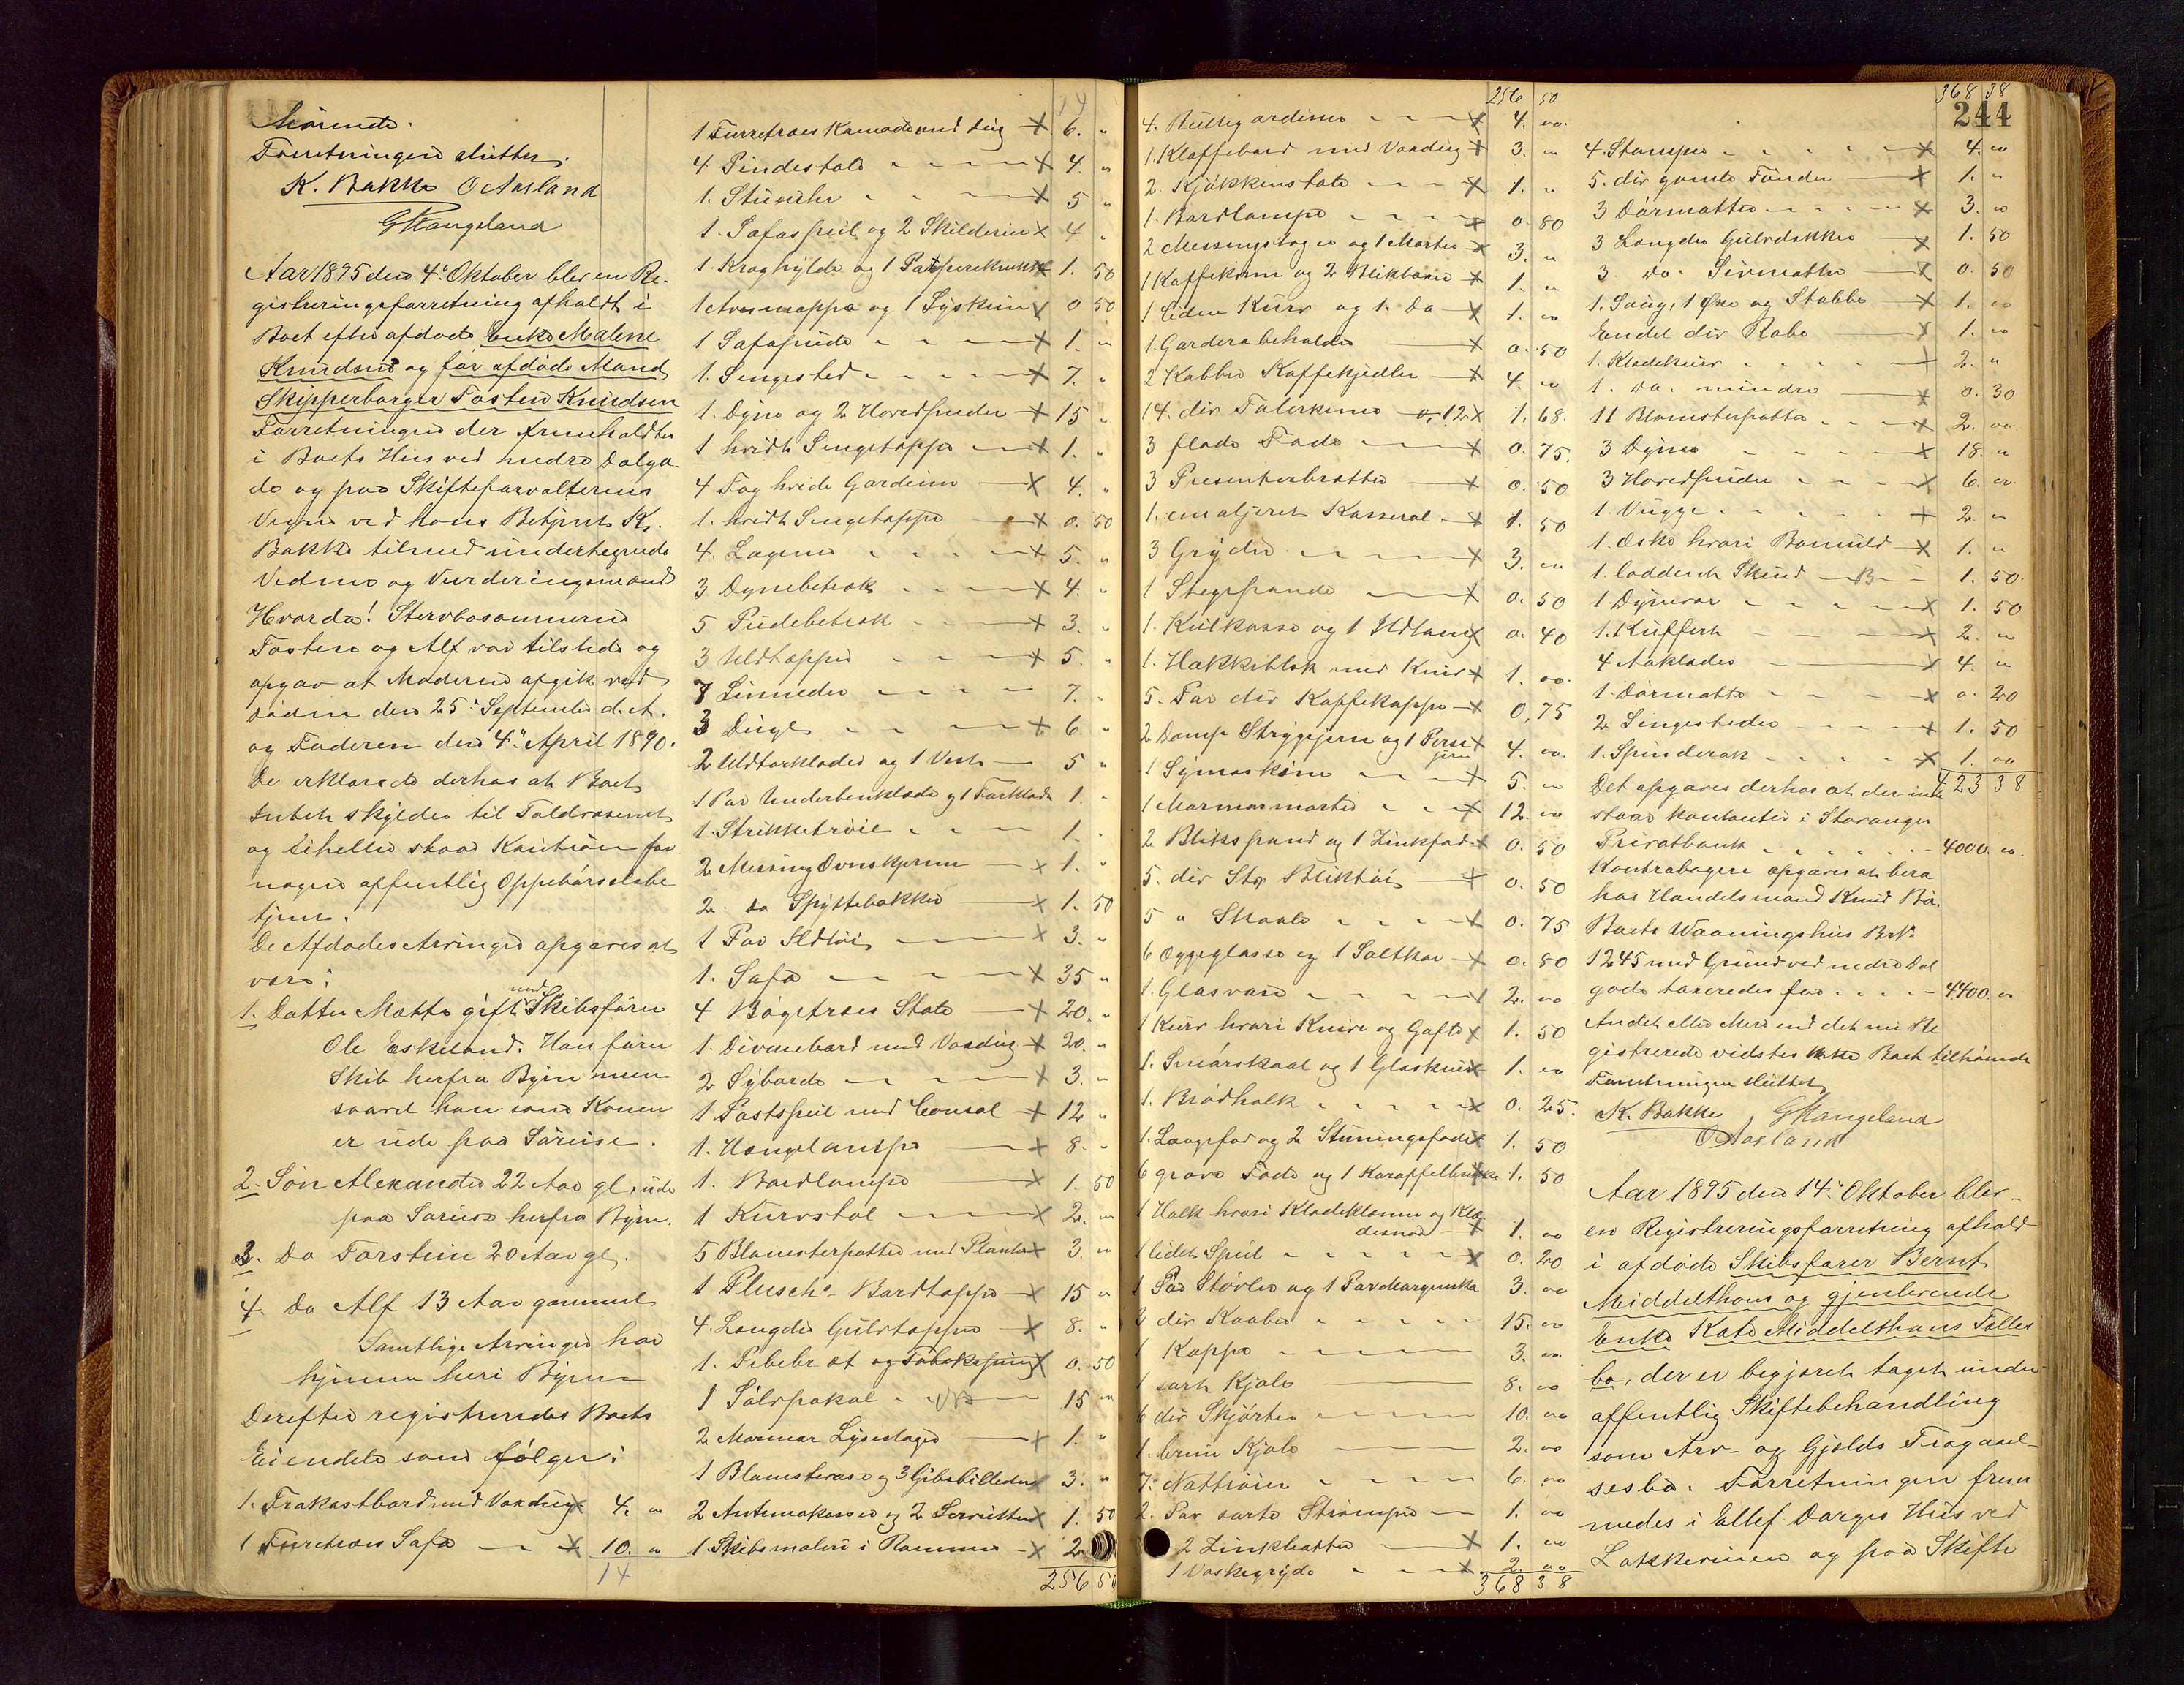 hörende.
Forretningen sluttet.
K. Bakke O Aasland
G Haugeland
Aar 1895 den 4de Oktober blev en Re-
gistreringsforretning afholdt i
Boet efter afdøde Enke Malene
Knudsen og før afdøde Mand
Skipperborger Tosten Knudsen
Forretningen der fremholdtes
i Boets Hus ved nedre Dalga-
de og paa Skifteforvalterens
Vegne ved hans Betjent K.
Bakke tilmed undertegnede
Vidner og Vurderingsmænd
Hvorda! Stervbosønnerne
Tosten og Alf var tilstede og
opgav at Moderen afgik ved
døden den 25. September d. A.
og Faderen den 4. April 1890.
De erklærede derhos at Boet
Intet skylder til Toldvæsenet
og eiheller staar Kaution for
nogen offentlig Oppebørselsbe
tjent.
De Afdødes Arvinger opgaves at
være:
1. Datter Mætte gift med Skibsfører
Ole Eskeland. Han fører
Skib herfra Byen men
saavel han som Konen
er ude paa Søreise.
2. Søn Alexander 22 Aar gl, ude
paa Søreise herfra Byen.
3. Do Torstein 20 Aar gl.
4. Do Alf 13 Aar gammel
Samtlige Arvinger har
hjemme heri Byen
Derefter registreredes Boets
Eiendele som følger:
1. Frakostbord med Voxdug x 4. "
1 Furetræes Sofa x 10. "
14
14
1 Furretræes Komode med dug x 6. "
4 Pindestole x 4. "
1. Stueuhr x 5 "
1. Sofaspeil og 2 Skilderier x 4 "
1 Kraghylde og 1 x 1. 50
1 Avismappe og 1 Syskrin x 0 50
1 Sofapude x 1. "
1. Sengested x 7. "
1. Dyne og 2 Hovedpuder x 15 "
1 hvidt Sengetæppe x 1. "
4 Fag hvide Gardiner x 4. "
1. hvidt Sengetæppe x 0. 50
4. Lagener x 5. "
3 Dynebetræk x 4. "
5 Pudebetræk x 3. "
3 Uldtæpper x 5. "
7 Linneder 7. "
3 Duge x 6. "
2 Uldtørklæder og 1 Vest 5 "
1 Par Underbenklæde og 1 Forklæde 1. "
1. Strikketrøie 1. "
2 Messing Ovnskjerme x 1. "
2. do Spyttebakker x 1. 50
1 Par Ildtøi x 3. "
1. Sofa x 35 "
4 Bøgetræes Stole x 20. "
1. Divanebord med Voxdug x 20. "
2 Syborde x 3. "
1 Postspeil med Consol x 12 "
1. Hængelampe x 8. "
1. Bordlampe x 1. 50
1 Kurvstol x 2. "
5 Blomsterpotter med Planter x 3. "
1 Plusch Bordtæppe x 15 "
4. Længder Gulvtæppe x 8. "
1. og Tobakspung x 0. 50
1 Sølvpokal 15 "
2 Marmor Lysestager x 1. "
1 Blomstervase og 3 Gibsbilleder x 3. "
2 Antemakasser og 2 Servietter x 1. 50
1. Skibsmaleri i Ramme x 2.
256 50
256 50
4. Rullegardiner x 4. "
1. Klaffebord med Voxdug x 3. "
2. Kjøkkenstole x 1. "
1. Bordlampe x 0. 80
2 Messingstager og 1 Morter x 3. "
1 Kaffekvern og 2 Blikbøsser x 1. "
1 liden Kurv og 1. Do x 1. "
1. Garderobeholder x 0. 50
2 Kobber Kaffekjedler x 4. "
14. div Talerkener 0,12 x 1. 68.
3 flade Fade x 0. 75.
3 Presenterbretter x 0. 50
1. emaljeret Kasserol x 1. 50
3 Gryder x 3. "
1 Stegepande x 0. 50
1. Kulkasse og 1 Ildtang x 0. 40
1. Hakkeblok med Kniv x 1. "
5. Par div Kaffekopper x 0,75
2 Damp Strygejern og 1 Persejern x 4. "
1 Symaskine x 5. "
1 Marmormorter x 12. "
2 Blikspand og 1 Zinkfad x 0. 50
5. div Stkr Bliktøi x 0. 50
5 " Skaale x 0. 75
6 Æggeglasse og 1 Saltkar x 0. 80
1. Glasvase x 2. "
1 Kurv hvori Knive og Gafler x 1. 50
1. Smørskaal og 1 Glaskrus x 1. "
1. Brødholk x 0. 25.
1. Langefad og 2 Stuningsfade x 1. 50
6 grove Fade og 1 x 1. 50
1 Holk hvori Klædeklemmer og Klæ
desnor x 1. "
1 lidet Speil x 0. 20
1 Par Støvler og 1 Par 3. "
3 div Kaaber 15. "
1 Kappe 3. "
1 sort Kjole 8. "
6 div Skjørter 10. "
1. brun Kjole 2. "
7. Nattrøier 6. "
2. Par sorte Strømper 1. "
2 Zinkbøtter x 1. "
1 Vaskegryde x 2. "
368 38
368 38
244
4. Stamper x 4. "
5. div gamle Tønder x 1. "
3 Dørmatter x 3. "
3 Længder Gulvdække x 1. 50
3. do. Sivmatter x 0. 50
1. Saug, 1 Øxe og Stabbe x 1. "
Endel div Kobe x 1. "
1. Klædekurv x 2. "
1. do. mindre x 0. 30
11 Blomsterpotter x 2. "
3 Dyner x 18. "
3 Hovedpuder x 6. "
1. Vugge x 2. "
1. Æske hvori Bomuld x 1. "
1. loddent Skind B 1. 50.
1. Dynevar x 1. 50
1. Kuffert x 2. "
4 Aaklæder x 4. "
1. Dørmatte x 0. 20
2 Sengesteder x 1. 50
1. Spinderok x 1. "
423 38
Det opgaves derhos at der inde
staar Kontanter i Stavanger
Privatbank 4000. "
Kontrabogen opgaves at bero
hos Handelsmand Knud Bø.
Boets Vaaningshus BrN.
1245 med Grund ved nedre Dal
gade taxeredes for 4400. "
Andet eller Mere end det nu Re
gistrerede vidstes ikke Boet tilhørende
Forretningen sluttet
K. Bakke G Haugeland
O Aasland
Aar 1895 den 14de Oktober blev
en Registreringsforretning afhold
i afdøde Skibsfører Bernt
Middelthons og gjenlevende
Enke Kate Middelthons Fælles
bo, der er begjæret taget under
offentlig Skiftebehandling
som Arv- og Gjelds Fragaael-
sesbo. Forretningen frem
medes i Ellef Darges Hus ved
Løkkeveien og paa Skifte